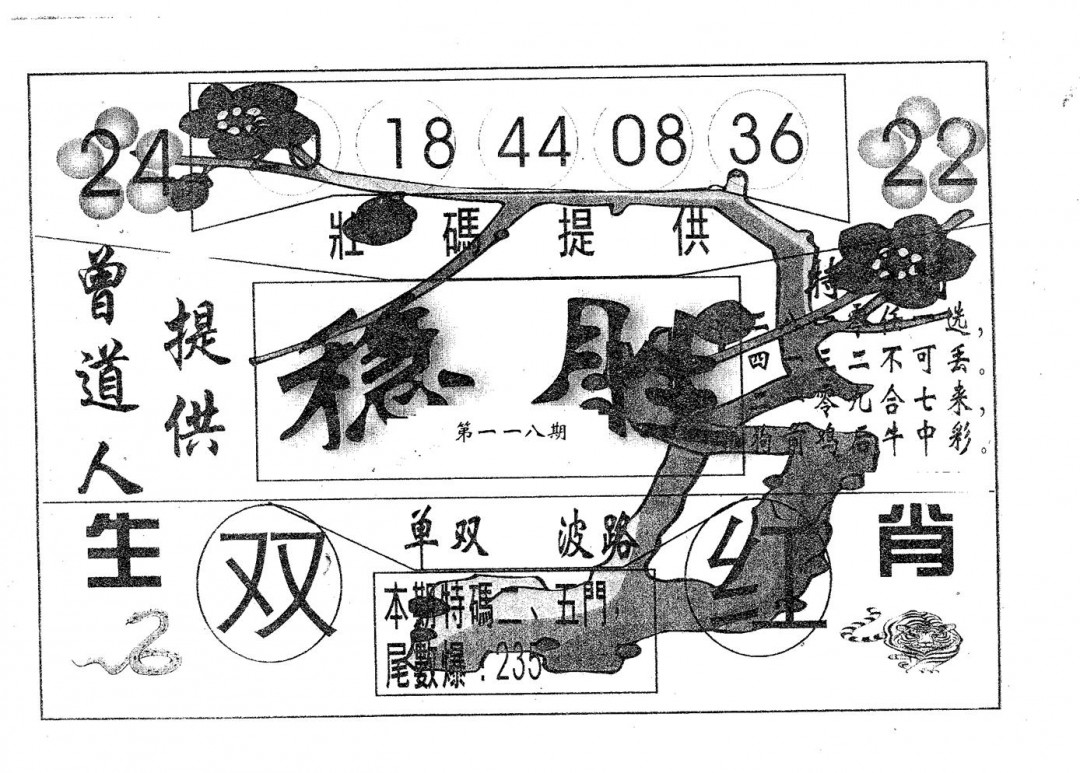 24
18 44 08 36
22
壯碼提供
曾道人
提供
稳胜
第一一八期
特
选，
四一三二不可丢。
零九合七来，
狗 鸡后牛中彩。
生
双
单双 波路
红
肖
本期特碼二、五門，
尾數爆：235